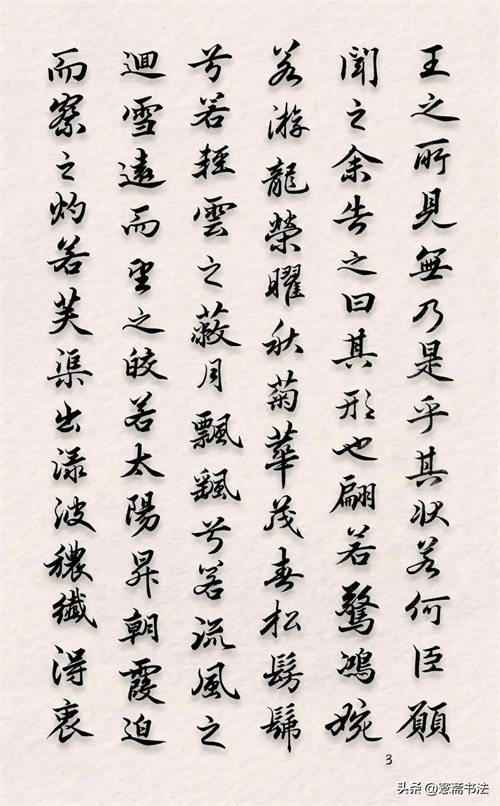 王之所見無乃是乎其状若何臣願
聞之余告之曰其形也翩若驚鴻婉
若游龍榮曜秋菊華茂春松髣髴
兮若輕雲之蔽月飄颻兮若流風之
迴雪遠而望之皎若太陽昇朝霞迫
而察之灼若芙渠出淥波穠纖得衷
3
头条@薏斋书法